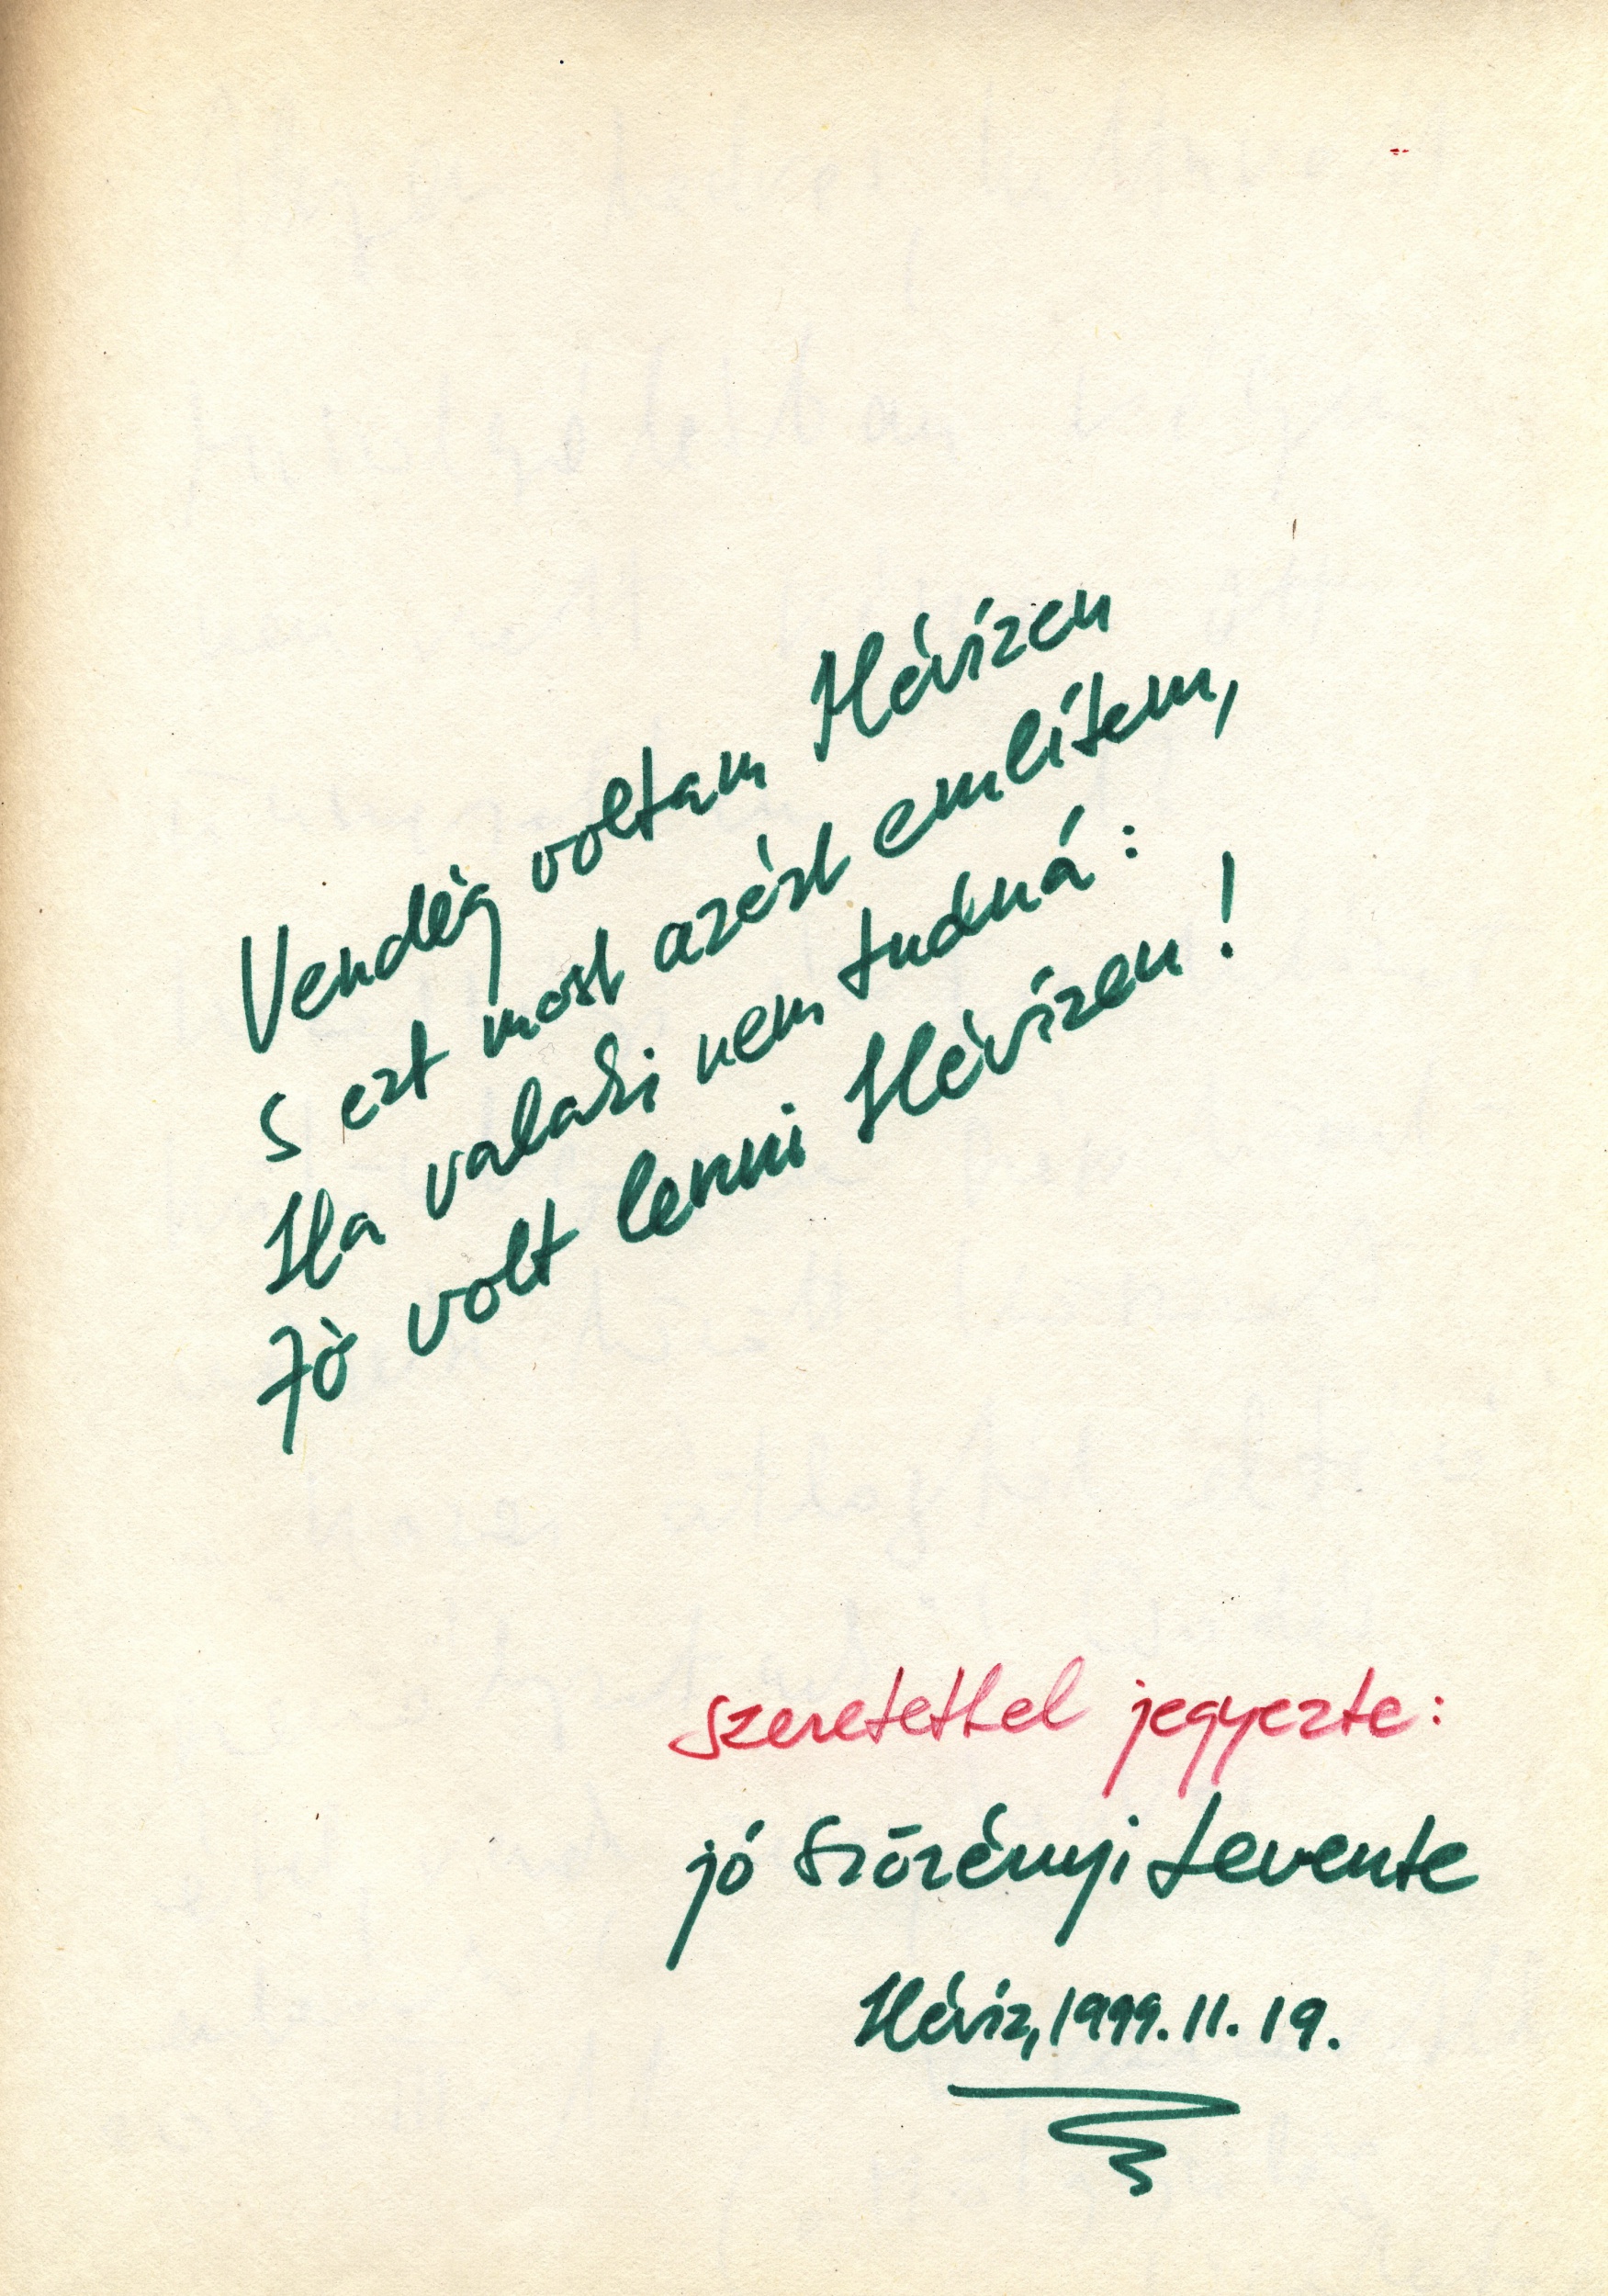 Vendég voltam Hévízen
s ezt most azért említem,
Ha valaki nem tudná:
Jó volt lenni Hévízen!
szeretettel jegyezte:
jó Szörényi Levente
Hévíz, 1999. 11. 19.